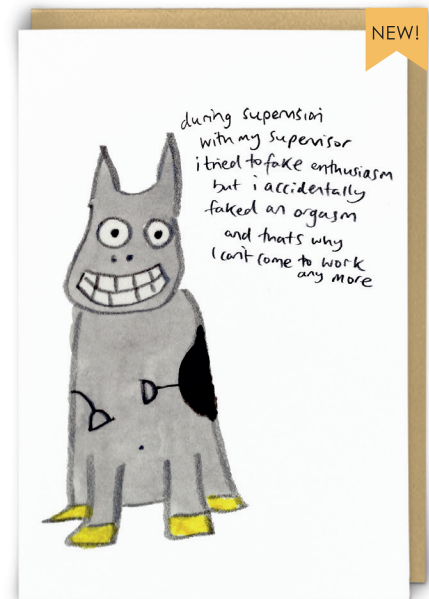 NEW!
during supervision
with my supervisor
i tried to fake enthusiasm
but i accidentally
faked an orgasm
and thats why
I can't come to work
any more